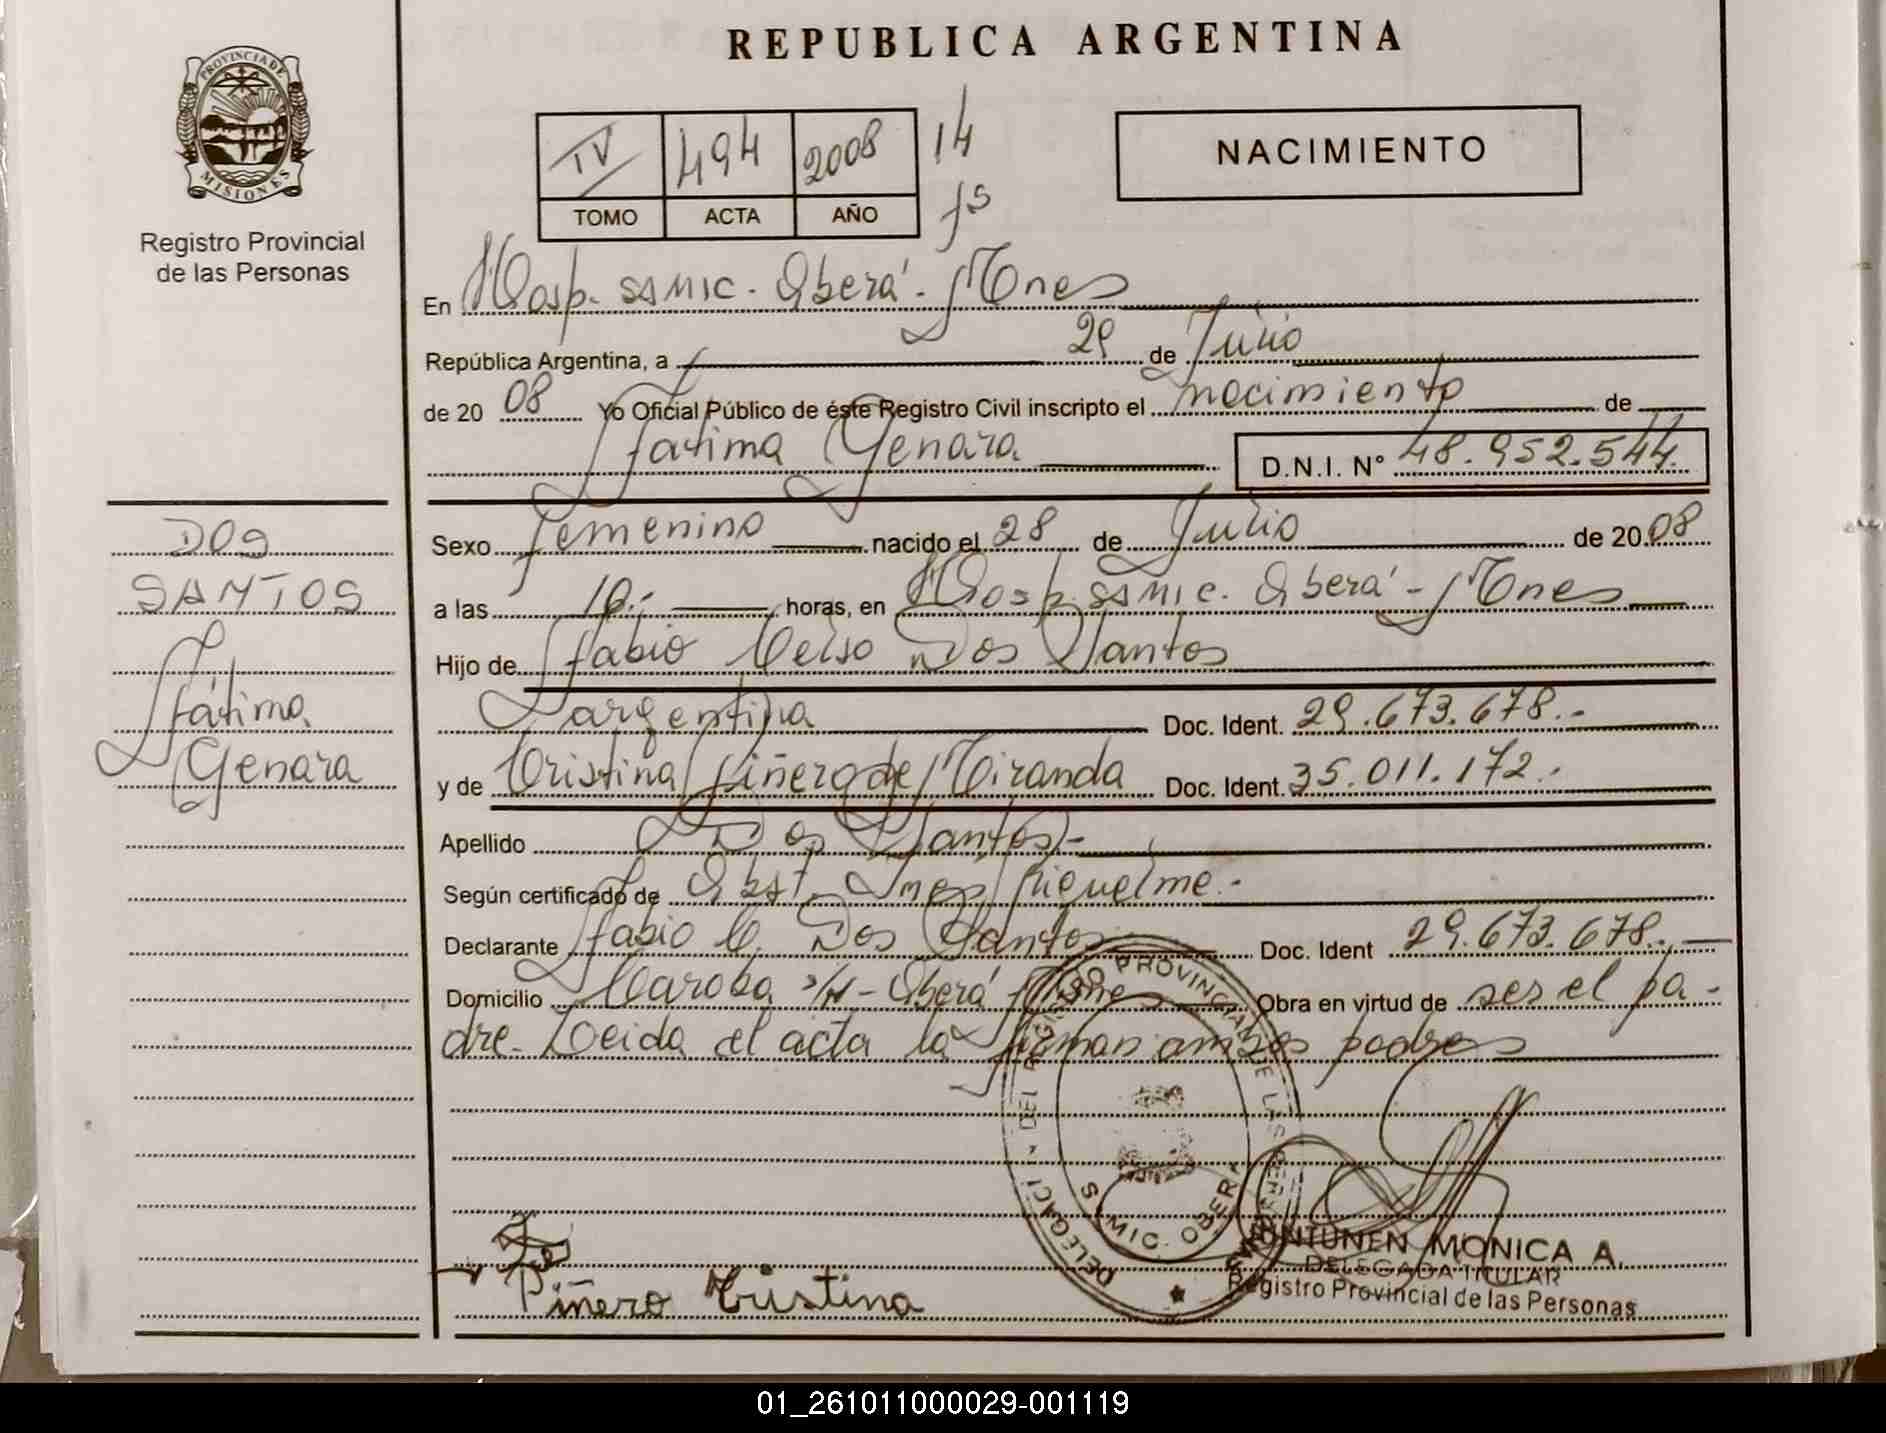 REPUBLICA ARGENTINA
PROVINCIA DE
MISIONES
Registro Provincial
de las Personas
IV 494 2008 14
TOMO ACTA AÑO fs
NACIMIENTO
En Hosp. SAMIC. Oberá - Mnes
República Argentina, a 29 de Julio
de 2008 Yo Oficial Público de éste Registro Civil inscripto el nacimiento de
Fatima Genara D.N.I. N° 48.952.544.
DOS
SANTOS
Fátima
Genara
Sexo femenino nacido el 28 de Julio de 2008
a las 10.- horas, en Hosp. SAMIC. Oberá - Mnes
Hijo de Fabio Celso Dos Santos
argentina Doc. Ident. 29.673.678.-
y de Cristina Piñero de Miranda Doc. Ident. 35.011.172.-
Apellido Dos Santos.-
Según certificado de Obst. Ines Riquelme.-
Declarante Fabio C. Dos Santos Doc. Ident 29.673.678.-
Domicilio S/N - Oberá Obra en virtud de ser el pa-
dre. Leida el acta la firman ambos padres
Piñero Cristina
MONICA A.
DELEGADA TITULAR
Registro Provincial de las Personas
01_261011000029-001119